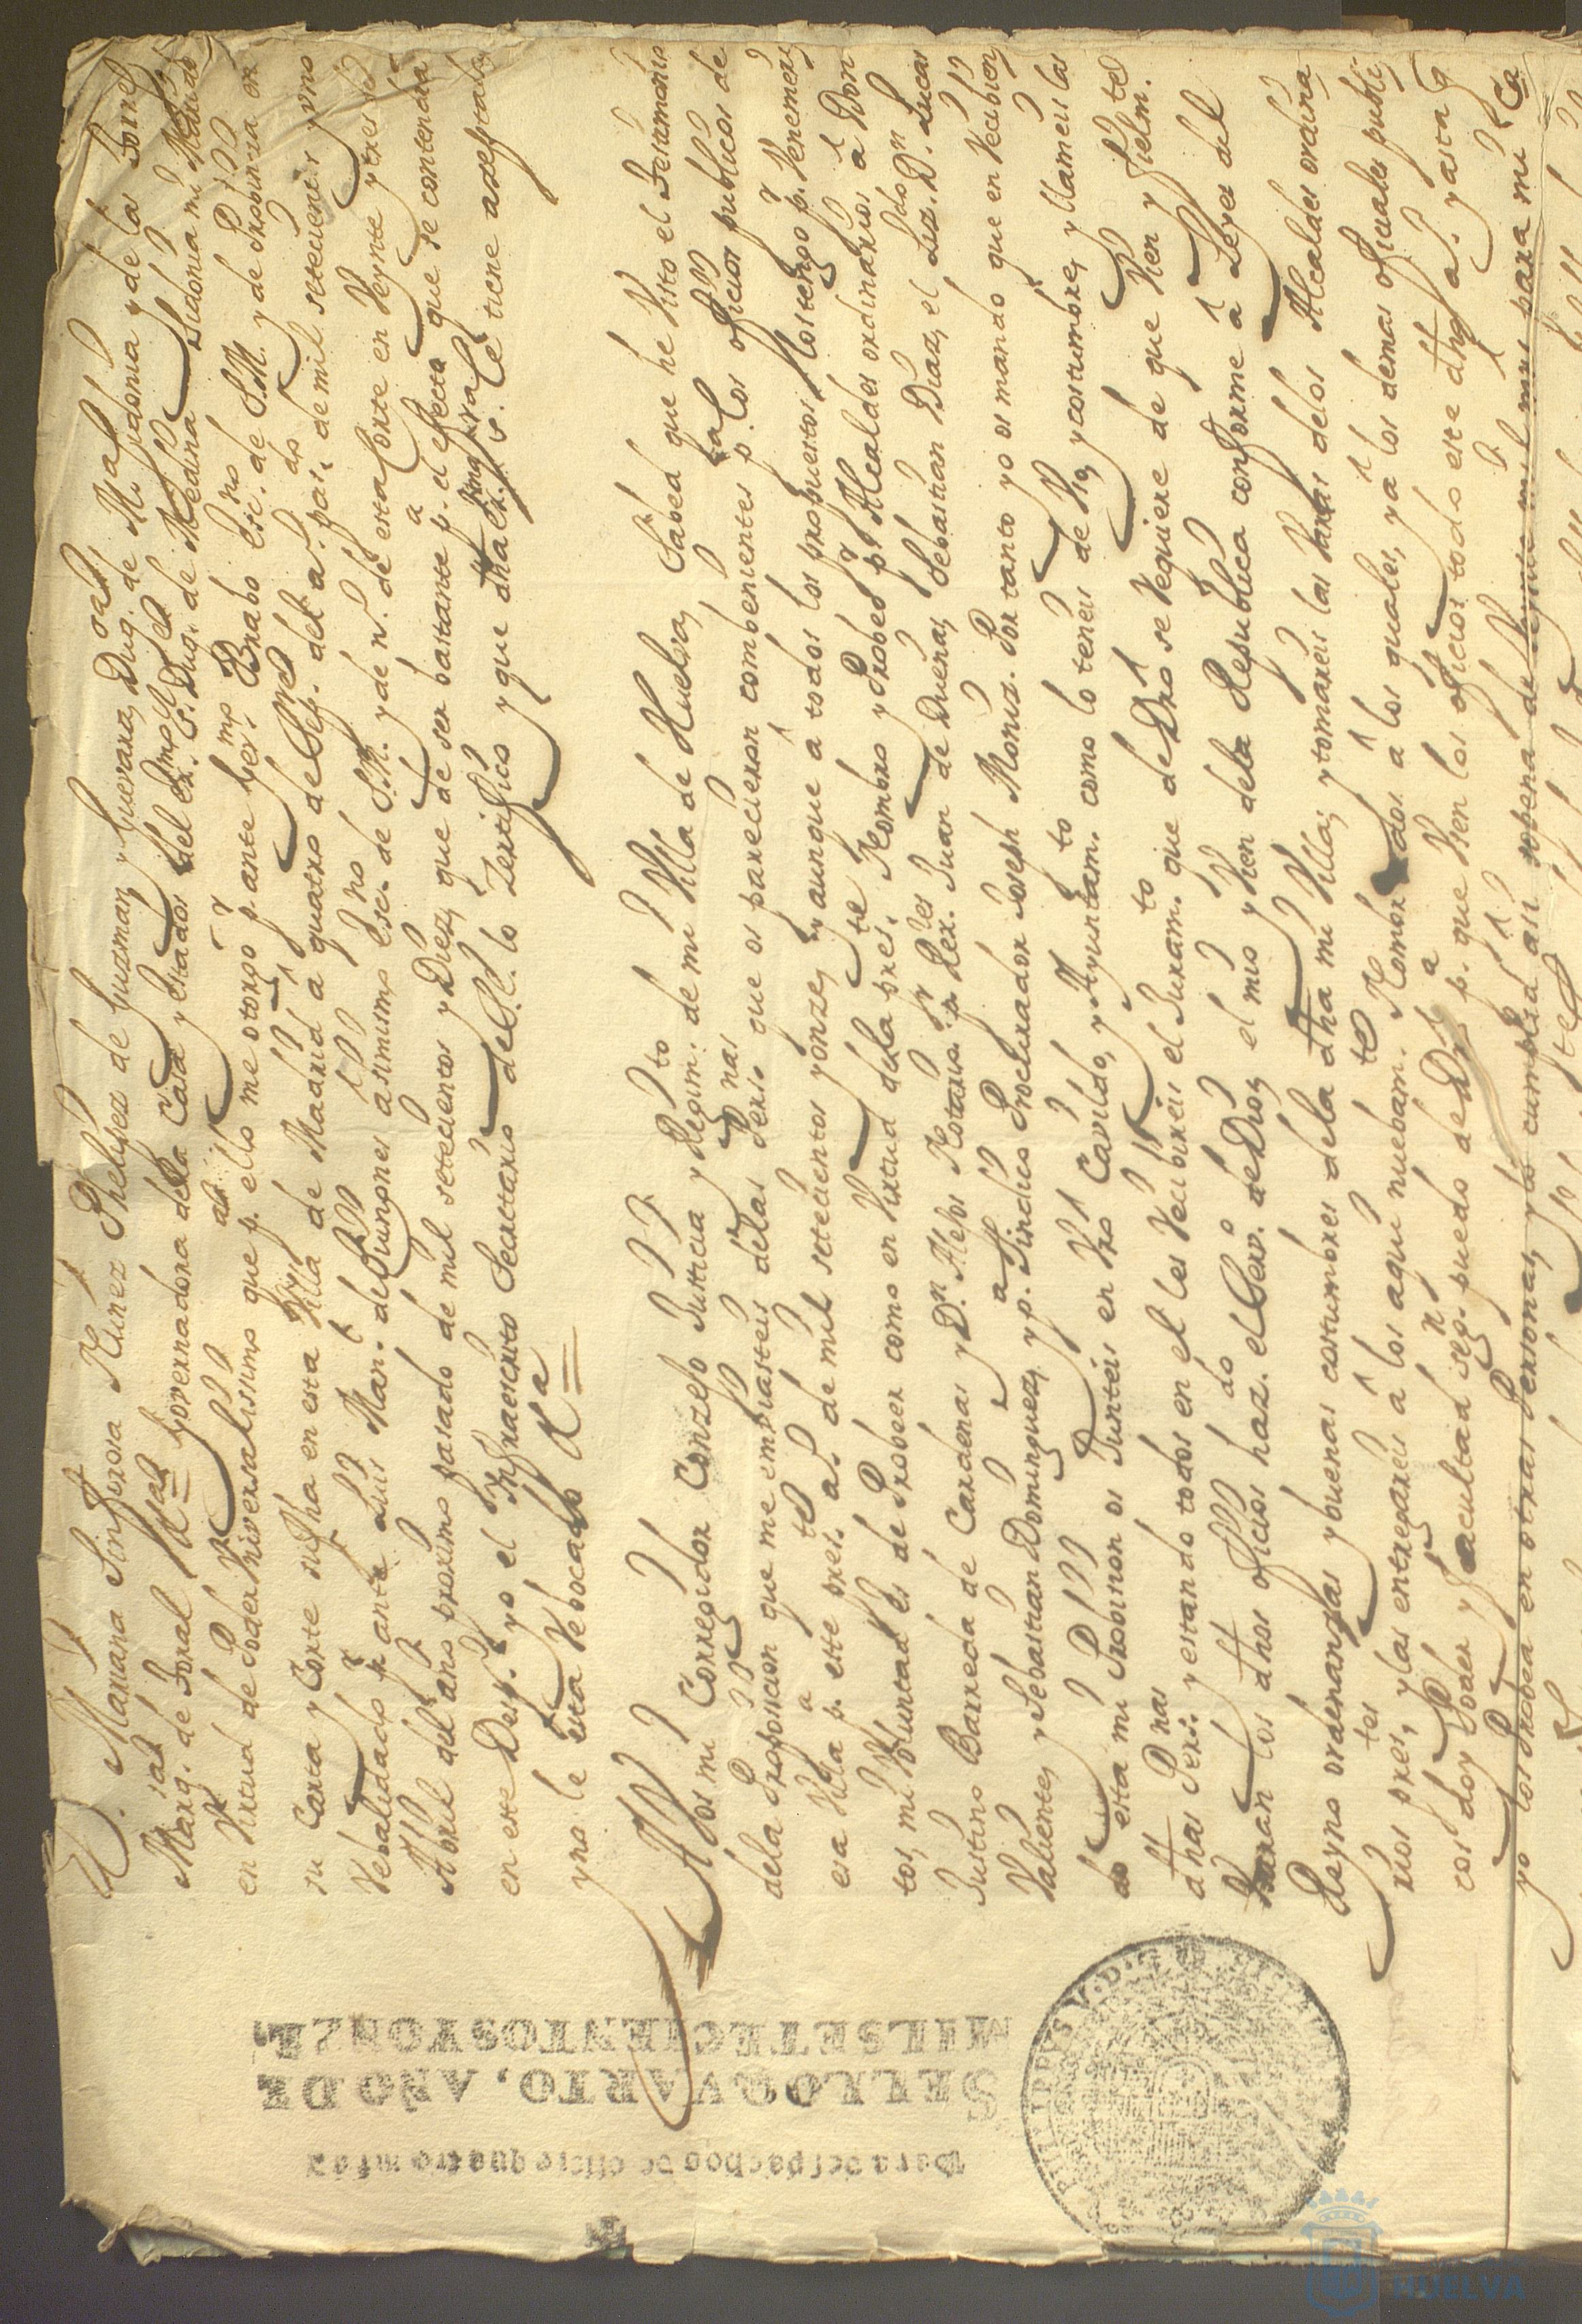 Para despachos de oficio quatro mrs
SELLO QVARTO, AÑO DE
MIL SETECIENTOS Y ONZE.
D.ª Mariana Sinforosa Nuñez Phelipez de Guzman, y Guevara, Duq.sa de M.ª Sidonia y de las Torres
Marq.sa de Toral Governadora dela Casa y estados del Ex.mo S.r Duq. de Medina Sidonia mi Marido
en Virtud de Poder Vniversalisimo que p.a ello me otorgo p.r ante Ger.mo Brabo Esc.no de S.M. y de Probincia en
su Casa y Corte su fha en esta Villa de Madrid â quatro de Sep.re del a.o pas.do de mil setecientos y uno
Rebalidado p.r ante Luis Man.l de Quiñones asimismo Esc.no de S.M. y de n.o de esta Corte en Veynte y tres de
Abril del año proximo pasado de mil setecientos y Diez, que de ser bastante p.a el efecto que se contendra
en este Desp.o yo el Infraescrito Secretario de S.E. lo Zertifico y que dha Ex.ma S.ra le tiene azeptado
y no le esta Rebocado
A Vos mi Corregidor Conzejo Justicia y Regim.to de mi Villa de Huelva, Sabed que he Visto el Testamonio
dela Proposicion que me embiasteis delas Perso.nas que os parecieron combenientes p.a los oficios publicos de
esa Villa p.a este pres.te a.o de mil setecientos y onze, y aunque â todos los propuestos los tengo p.r Venemeri
tos, mi Voluntad es de Prober como en Virtud dela pres.te Nombro y Probeo p.r Alcaldes ordinarios â Don
Justino Barreda de Cardenas y D.n Alejos Notario. p.r Rex.res Juan de Dueñas, Sebastian Diaz, el Liz.do D.n Lucas
Valiente, y Sebastian Dominguez, y p.a Sindico Procurador Joseph Moniz. Por tanto yo os mando que en Recibien
do esta mi Probision os Junteis en Vro Cavildo, y Ayuntam.to como lo teneis de Vso, y costumbre, y llameis las
dhas Perso.nas y estando todos en el les Recibireis el Juram.to que de Dro se Requiere de que Vien y fielm.te
Vsaran los dhos oficios haz.do el Serv.o de Dios, el mio y Vien dela Republica conforme â Leyes del
Reyno ordenanzas y buenas costumbres dela dha mi Villa; y tomareis las Varas delos Alcaldes ordina
rios pres.tes, y las entregareis â los aqui nuebam.te Nombrados â los quales, y â los demas oficiales publi
cos doy Poder y facultad seg.n puedo de Dro p.a que Vsen los oficios todo este dho a.o y asta q
yo los Probea en otras Personas, y lo cumplid asi sopena de Veynte mil mrs para mi Ca
HUELVA